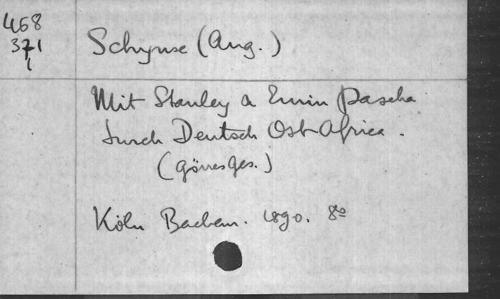 468
371
1
Schynse (Aug.)
Mit Stanley a Emin Pascha
durch Deutsch Ost-Africa.
(Görres Ges.)
Köln Bachem. 1890. 8°